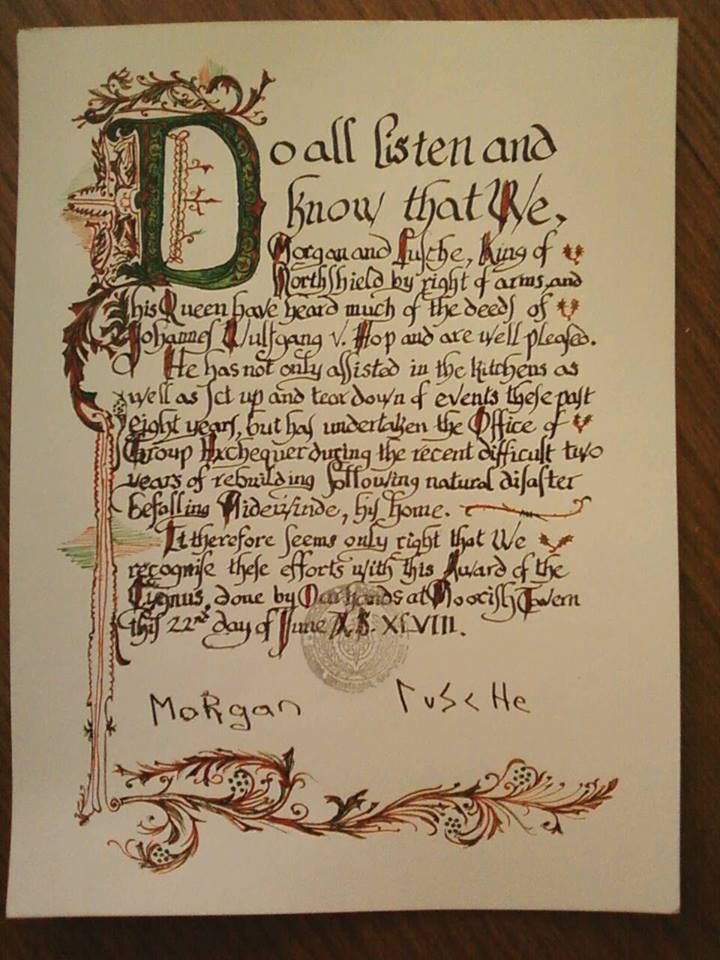 Do all listen and
know that We,
Morgan and Lusche, King of
Northshield by right of arms, and
His Queen have heard much of the deeds of
Johannes Wulfgang v. Hop and are well pleased.
He has not only assisted in the kitchens as
well as set up and tear down of events these past
eight years, but has undertaken the Office of
Group Exchequer during the recent difficult two
years of rebuilding following natural disaster
befalling Niderwinde, his home.
It therefore seems only right that We
recognise these efforts with this Award of the
Cygnus, done by Our hands at Moorish Tavern
this 22nd day of June A.S. XLVIII.
Morgan Lusche